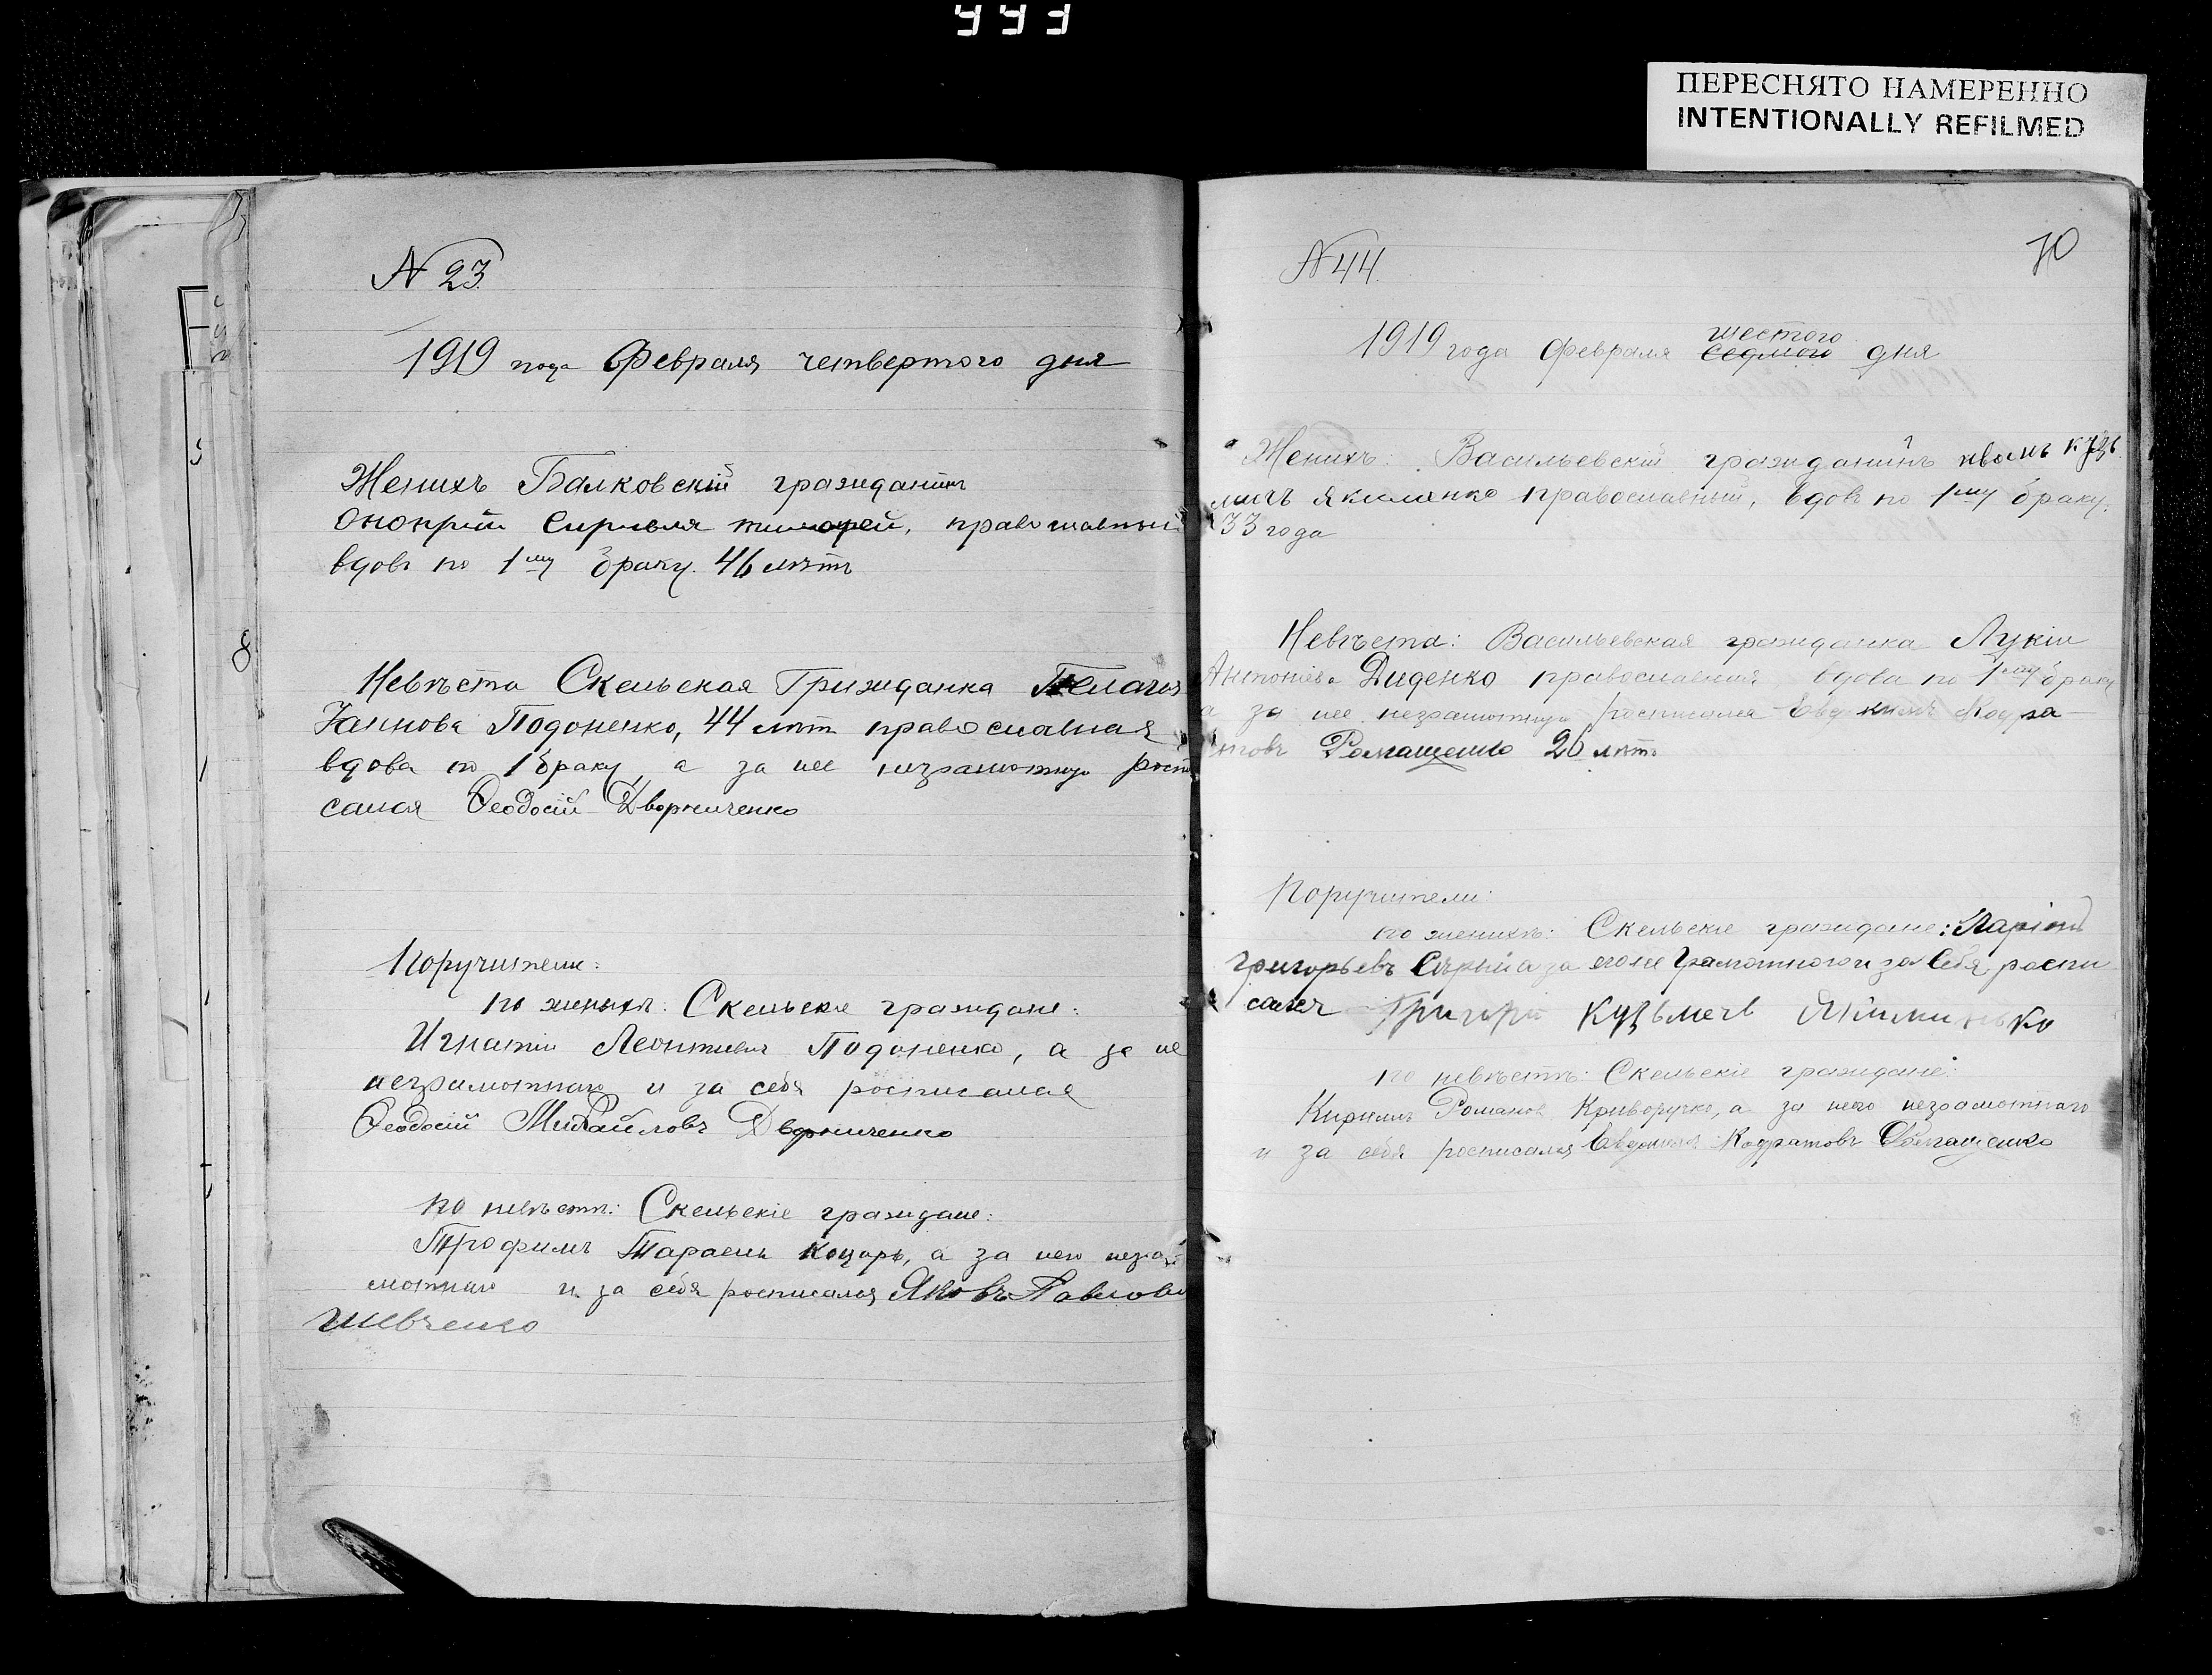 ПЕРЕСНЯТО НАМЕРЕННО
INTENTIONALLY REFILMED
N 23.
1919 года Февраля четвертого дня
Женихъ Балковскій гражданинъ
православный
вдовъ по 1му браку. 46 лѣтъ
Невѣста Скельская Гражданка Пелагія
Подоненко, 44 лѣт православная
вдова по 1 браку, а за нее неграмотную роспи
сался Ѳеодосій Дворниченко
Поручители:
по женихѣ: Скельскіе граждане:
Игнатій Леонтіевъ Подоненко, а за не
неграмотнаго и за себя росписался
Ѳеодосій Михайловъ Дворниченко
по невѣстѣ: Скельскіе граждане:
Трофимъ Тарасовъ Коцарь, а за него негра
мотнаго и за себя росписался Яковъ Павловъ
Шевченко
8
70
N 44.
1919 года Февраля шестого седмого дня
Женихъ: Васильевскій гражданинъ Иванъ Кузь
мичъ Якименко православный, вдовъ по 1му браку.
33 года
Невѣста: Васильевская гражданка Лукія
Антоніева Диденко православная вдова по 1му браку
а за нее неграмотную росписался Евдокимъ Кодра
товъ Ромащенко 26 лѣтъ
Поручители:
по женихѣ: Скельскіе граждане: Ларіонъ
Григорьевъ Сѣрый а за его не Грамотного и за Себя роспи
сался Григорій Кузьмечь
по невѣстѣ: Скельскіе граждане:
Кириллъ Романовъ Криворучко, а за него неграмотнаго
и за себя росписался Евдокимъ Кодратовъ Ромащенко